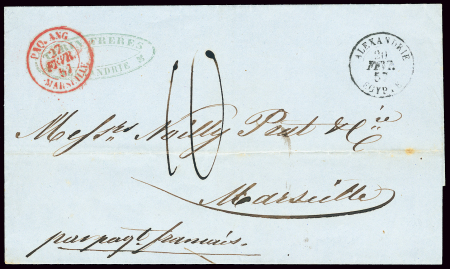 PAQ. ANG
27
FEVR.
57
MARSEILLE
FRERES
ALEXANDRIE
ALEXANDRIE
20
FEVR.
57
EGYPTE
10
Messrs Noilly Prat & Cie
Marseille
par paqt. francais.